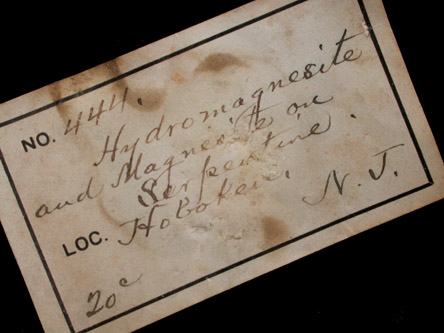 NO. 444.
Hydromagnesite
and Magnesite on
Serpentine.
LOC. Hoboken. N. J.
20c